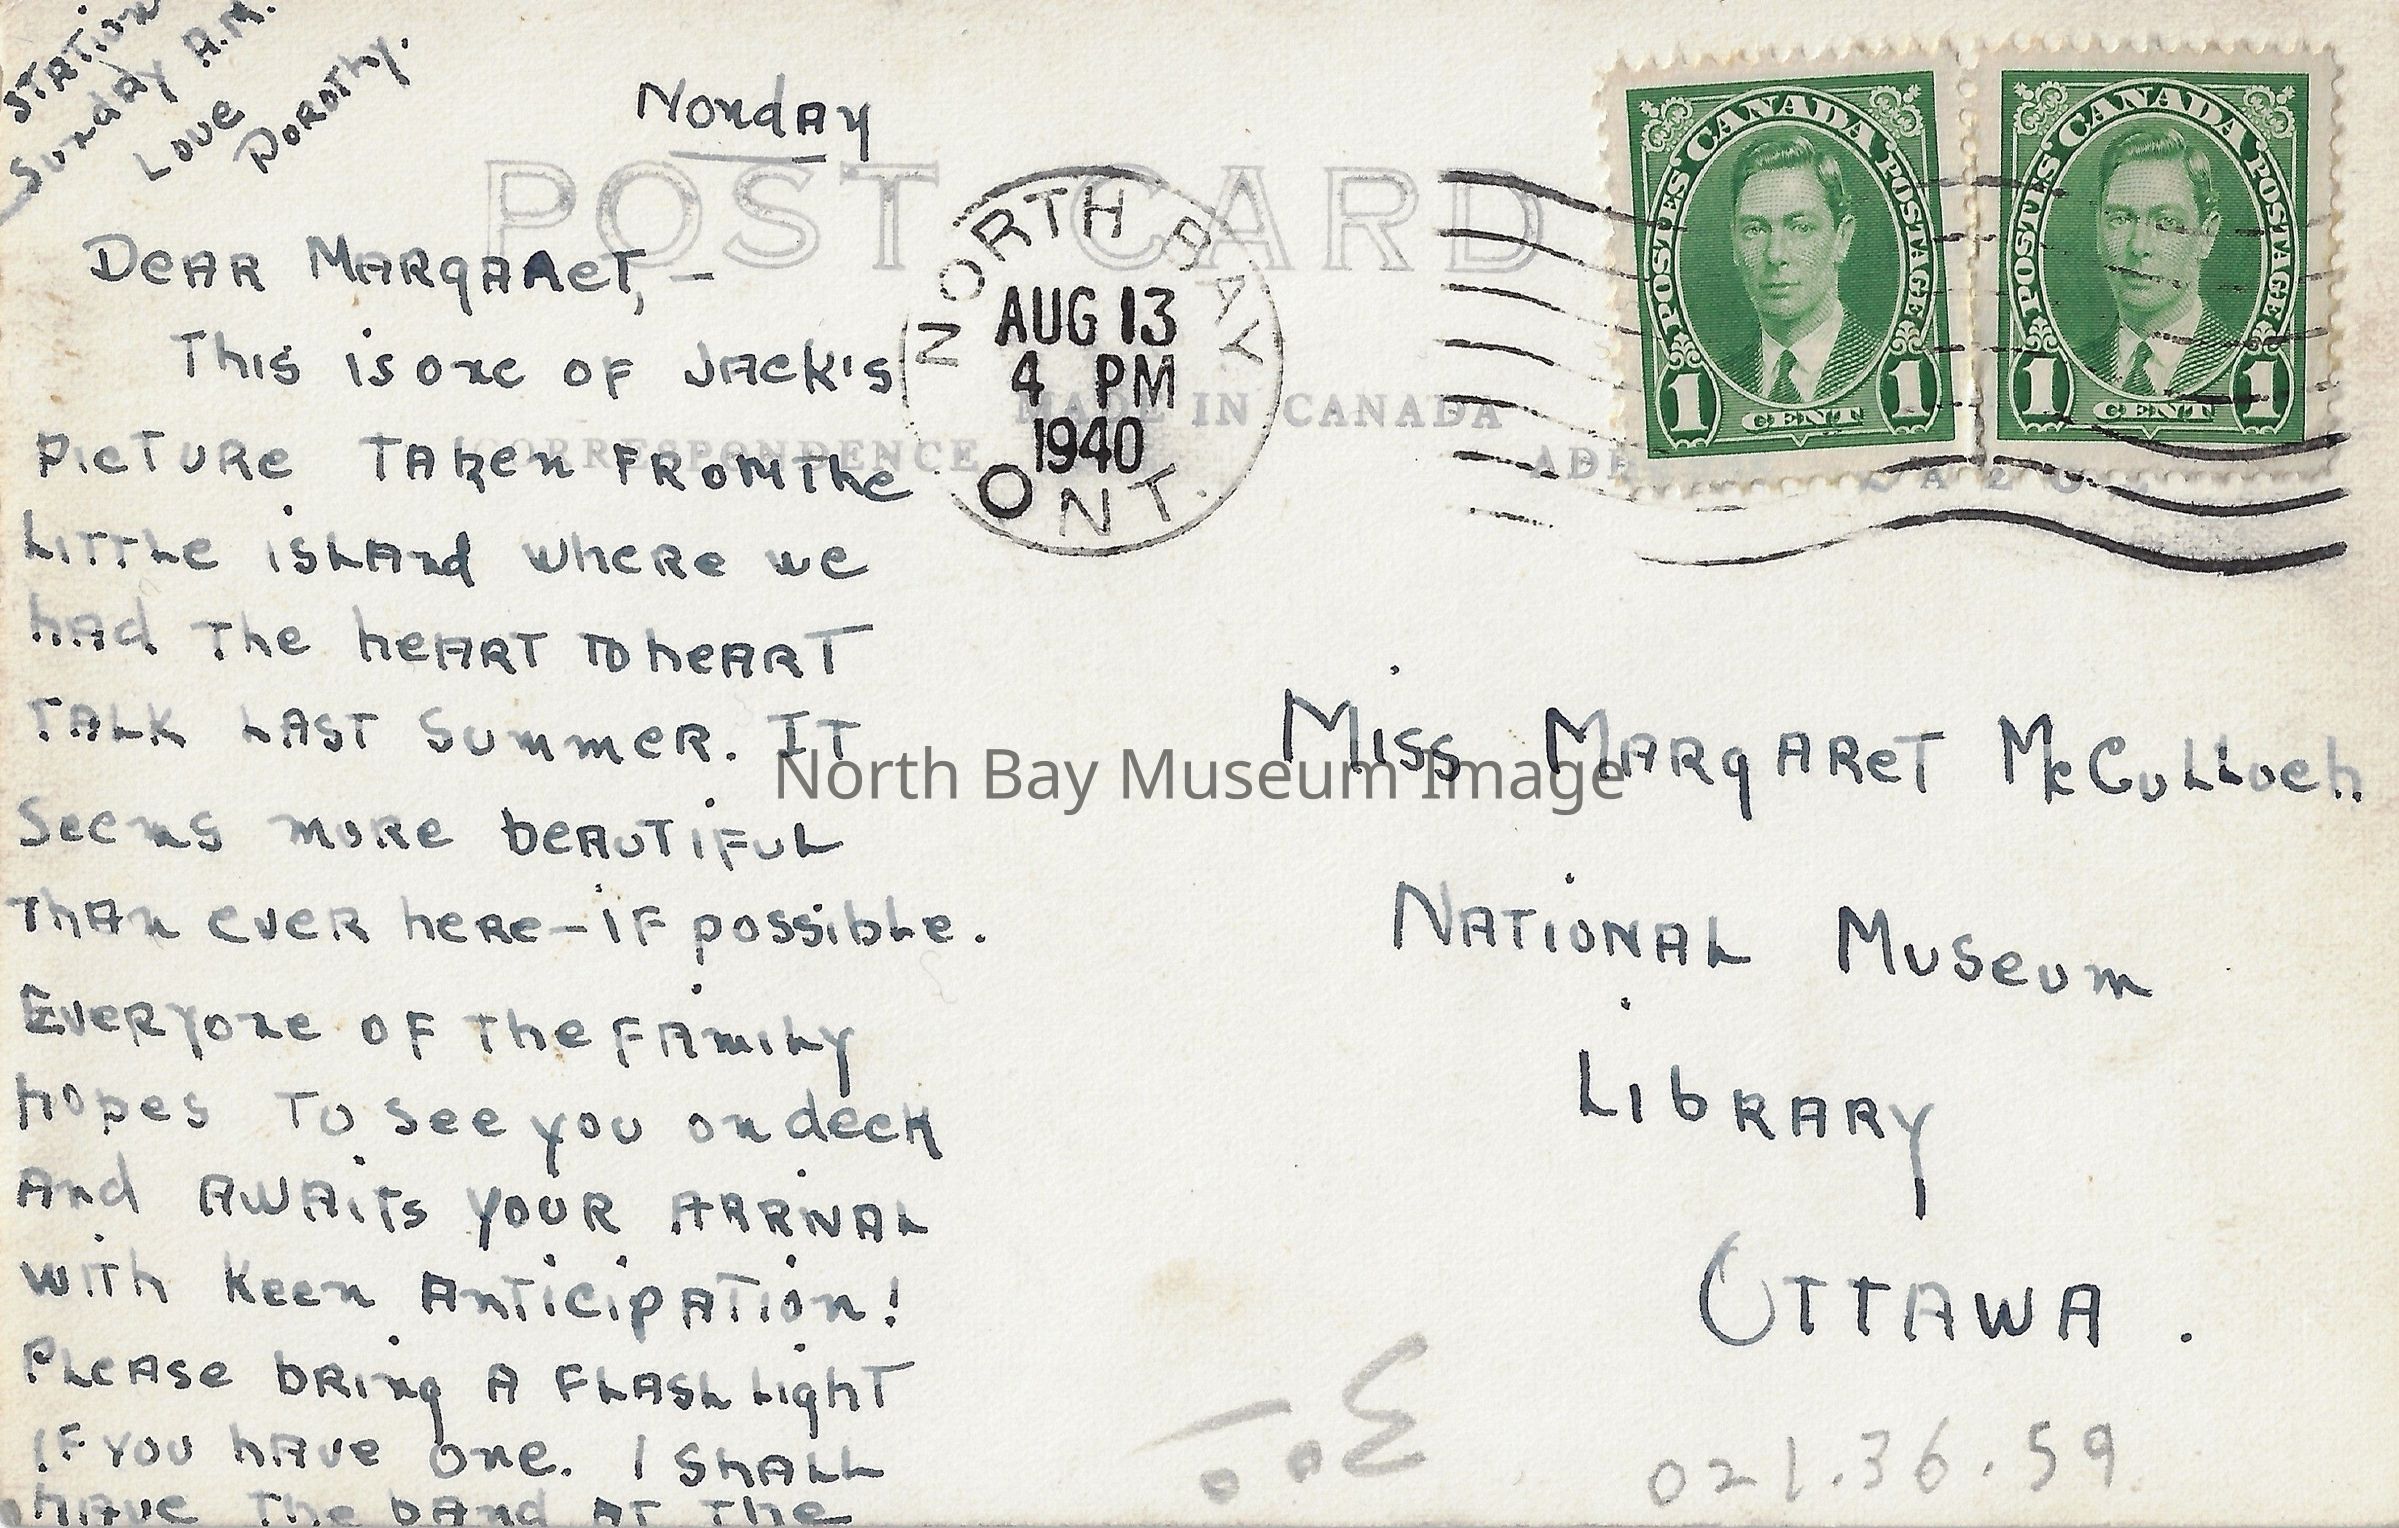 Monday
POST CARD
Dear Margaret, -
This is one of Jack's
picture taken from the
little island where we
had the heart to heart
talk last summer. It
seems more beautiful
than ever here - if possible.
Everyone of the family
hopes to see you on deck
and awaits your arrival
with keen anticipation!
Please bring a flash light
if you have one. I shall
have the band at the
station
Sunday A.M.
Love
Dorothy.
CORRESPONDENCE
MADE IN CANADA
NORTH BAY
AUG 13
4 PM
1940
ONT.
POSTES CANADA POSTAGE
1 CENT 1
POSTES CANADA POSTAGE
1 CENT 1
Miss Margaret McCulloch
National Museum
Library
Ottawa.
021.36.59
North Bay Museum Image